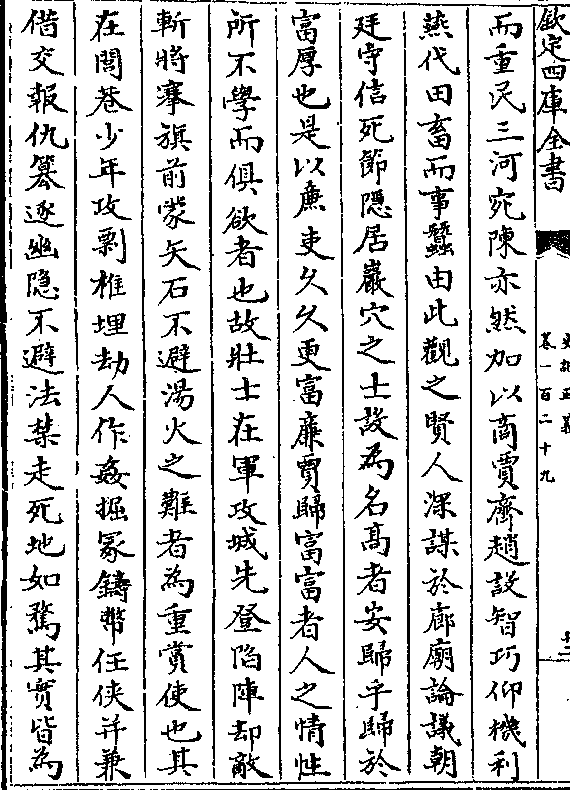 欽定四庫全書
史記正義
卷一百二十九
而重民三河宛陳亦然加以商賈齊趙設智巧仰機利
燕代田畜而事蠶由此觀之賢人深謀於廊廟論議朝
廷守信死節隱居巖穴之士設為名髙者安歸乎歸於
富厚也是以廉吏久久更富廉賈歸富富者人之情性
所不學而俱欲者也故壯士在軍攻城先登陷陣却敵
斬將搴旗前蒙矢石不避湯火之難者為重賞使也其
在閭巷少年攻剽椎埋劫人作姦掘冢鑄幣任俠并兼
借交報仇篡逐幽隐不避法禁走死地如騖其實皆為